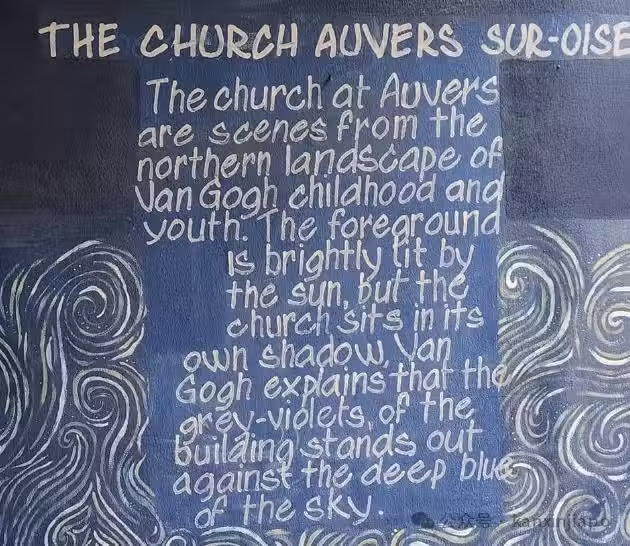 THE CHURCH AUVERS SUR-OISE
The church at Auvers
are scenes from the
northern landscape of
Van Gogh childhood and
youth. The foreground
is brightly lit by
the sun, but the
church sits in its
own shadow, Van
Gogh explains that the
grey-violets, of the
building stands out
against the deep blue
of the sky.
公众号 · kanxinjiapo